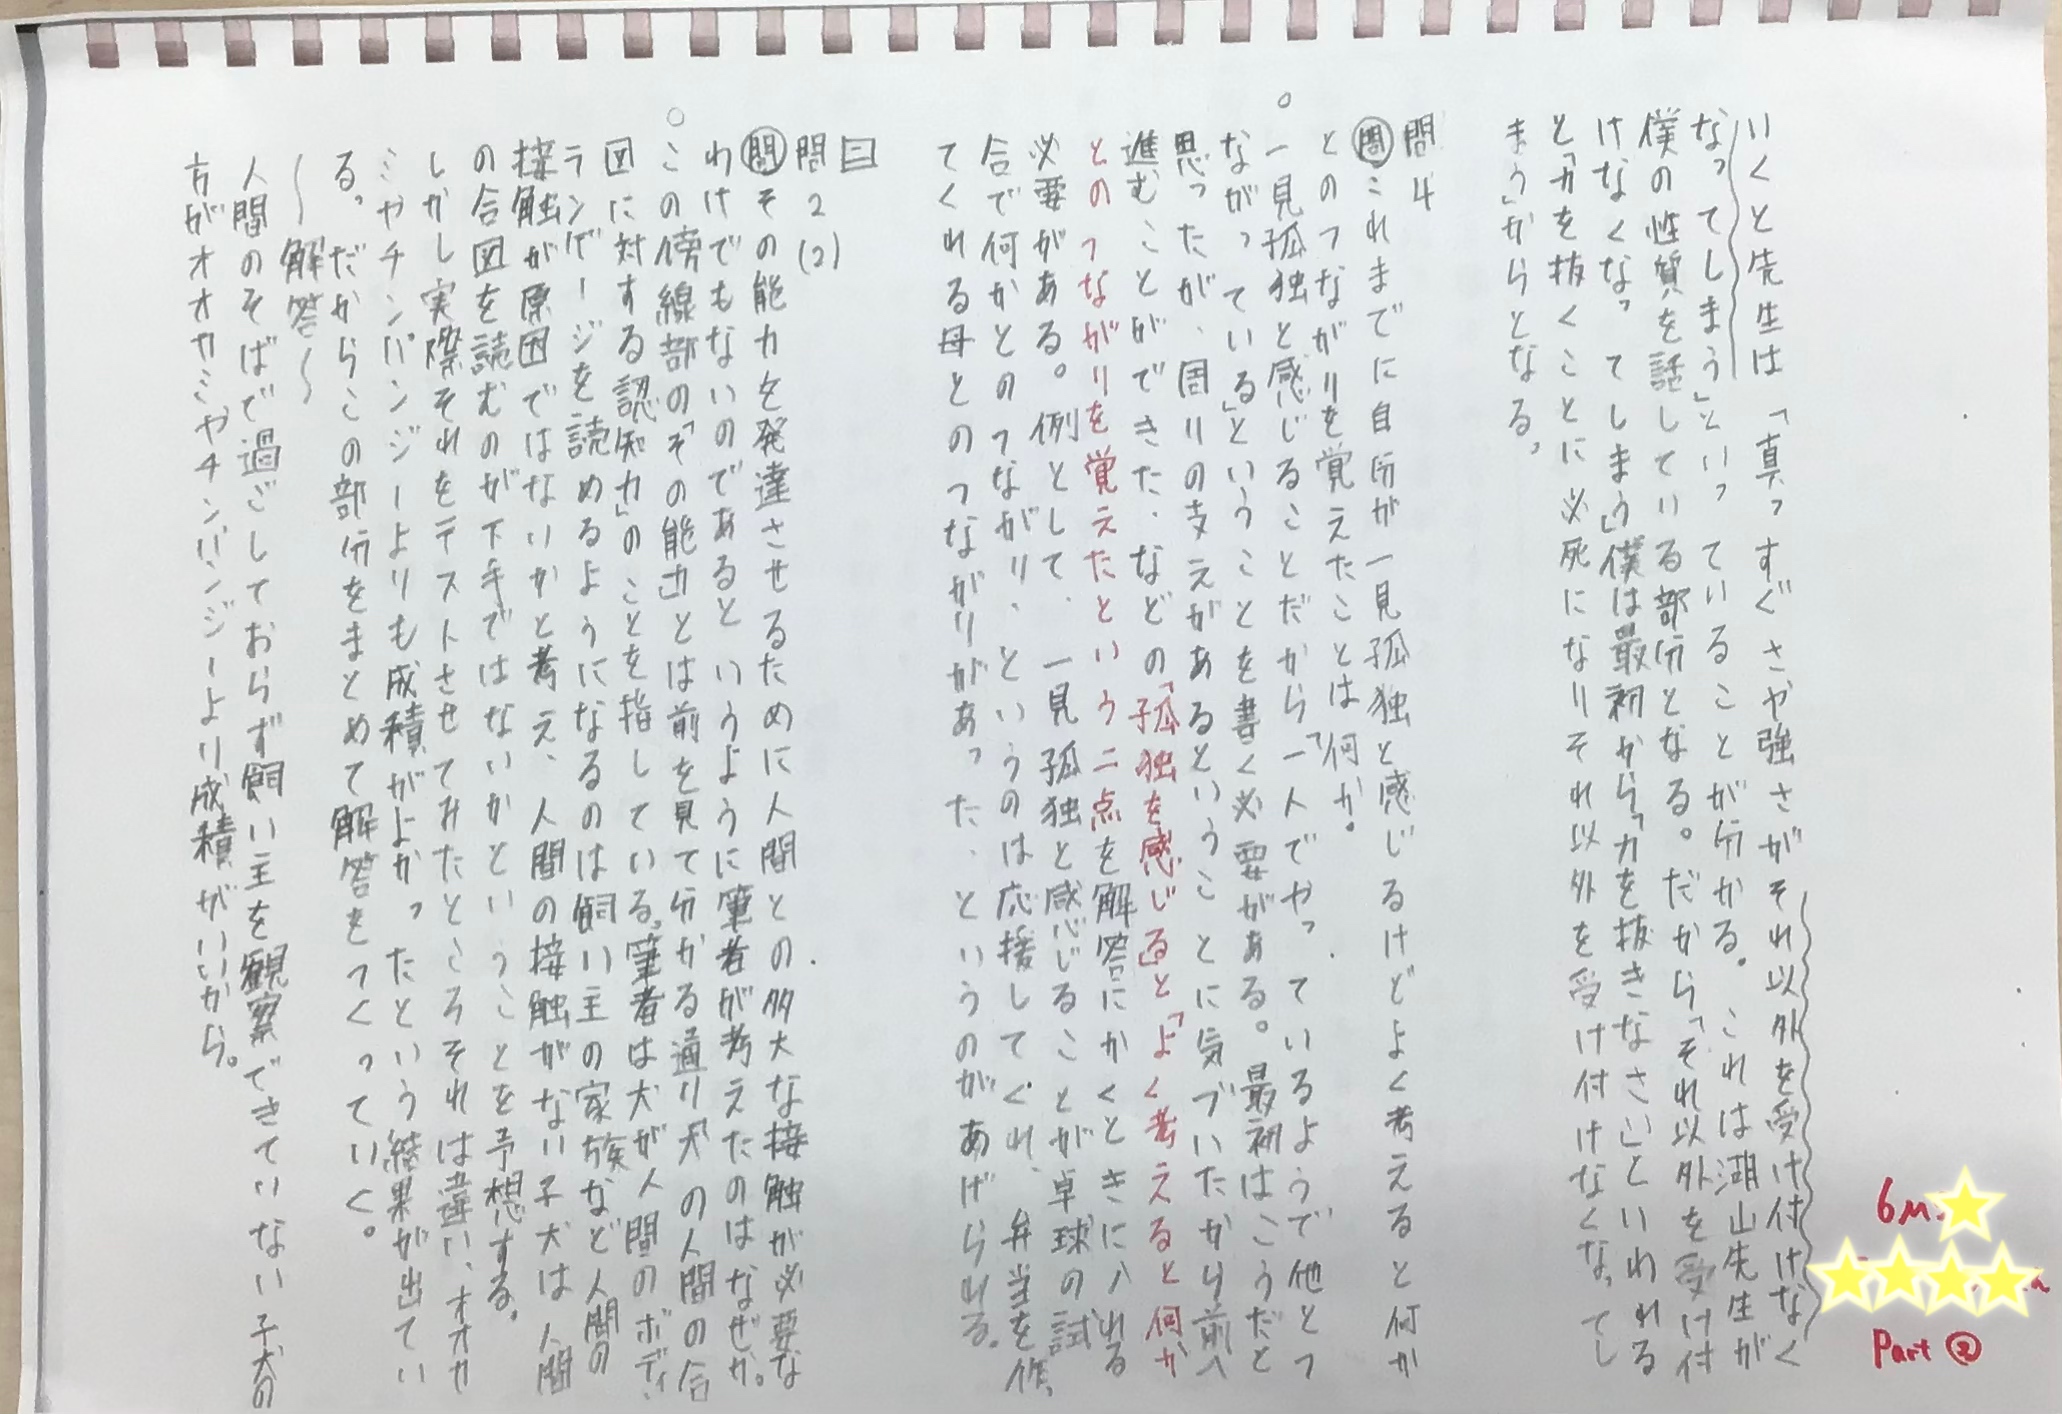 いくと先生は「真っすぐさや強さがそれ以外を受け付けなく
なってしまう」といっていることが分かる。これは湖山先生が
僕の性質を話している部分となる。だから「それ以外を受け付
けなくなってしまう」僕は最初から「力を抜きなさい」といわれる
と「力を抜くことに必死になりそれ以外を受け付けなくなってし
まう」からとなる。
問4
問 これまでに自分が一見孤独と感じるけどよく考えると何か
とのつながりを覚えたことは何か。
○一見孤独と感じることだから「一人でやっているようで他とつ
ながっている」ということを書く必要がある。最初はこうだと
思ったが、周りの支えがあるということに気づいたから前へ
進むことができた、などの「孤独を感じる」と「よく考えると何か
とのつながりを覚えたという二点を解答にかくときに入れる
必要がある。例として、一見孤独と感じることが卓球の試
合で何かとのつながり、というのは応援してくれ、弁当を作っ
てくれる母とのつながりがあった、というのがあげられる。
二
問2(2)
問 その能力を発達させるために人間との多大な接触が必要な
わけでもないのであるというように筆者が考えたのはなぜか。
○この傍線部の「その能力」とは前を見て分かる通り「犬の人間の合
図に対する認知力」のことを指している。筆者は犬が人間のボディ
ランゲージを読めるようになるのは飼い主の家族など人間の
接触が原因ではないかと考え、人間の接触がない子犬は人間
の合図を読むのが下手ではないかということを予想する。
しかし実際それをテストさせてみたところそれは違い、オオカ
ミやチンパンジーよりも成積がよかったという結果が出てい
る。だからこの部分をまとめて解答をつくっていく。
～解答～
人間のそばで過ごしておらず飼い主を観察できていない子犬の
方がオオカミやチンパンジーより成積がいいから。
6M
Part ②